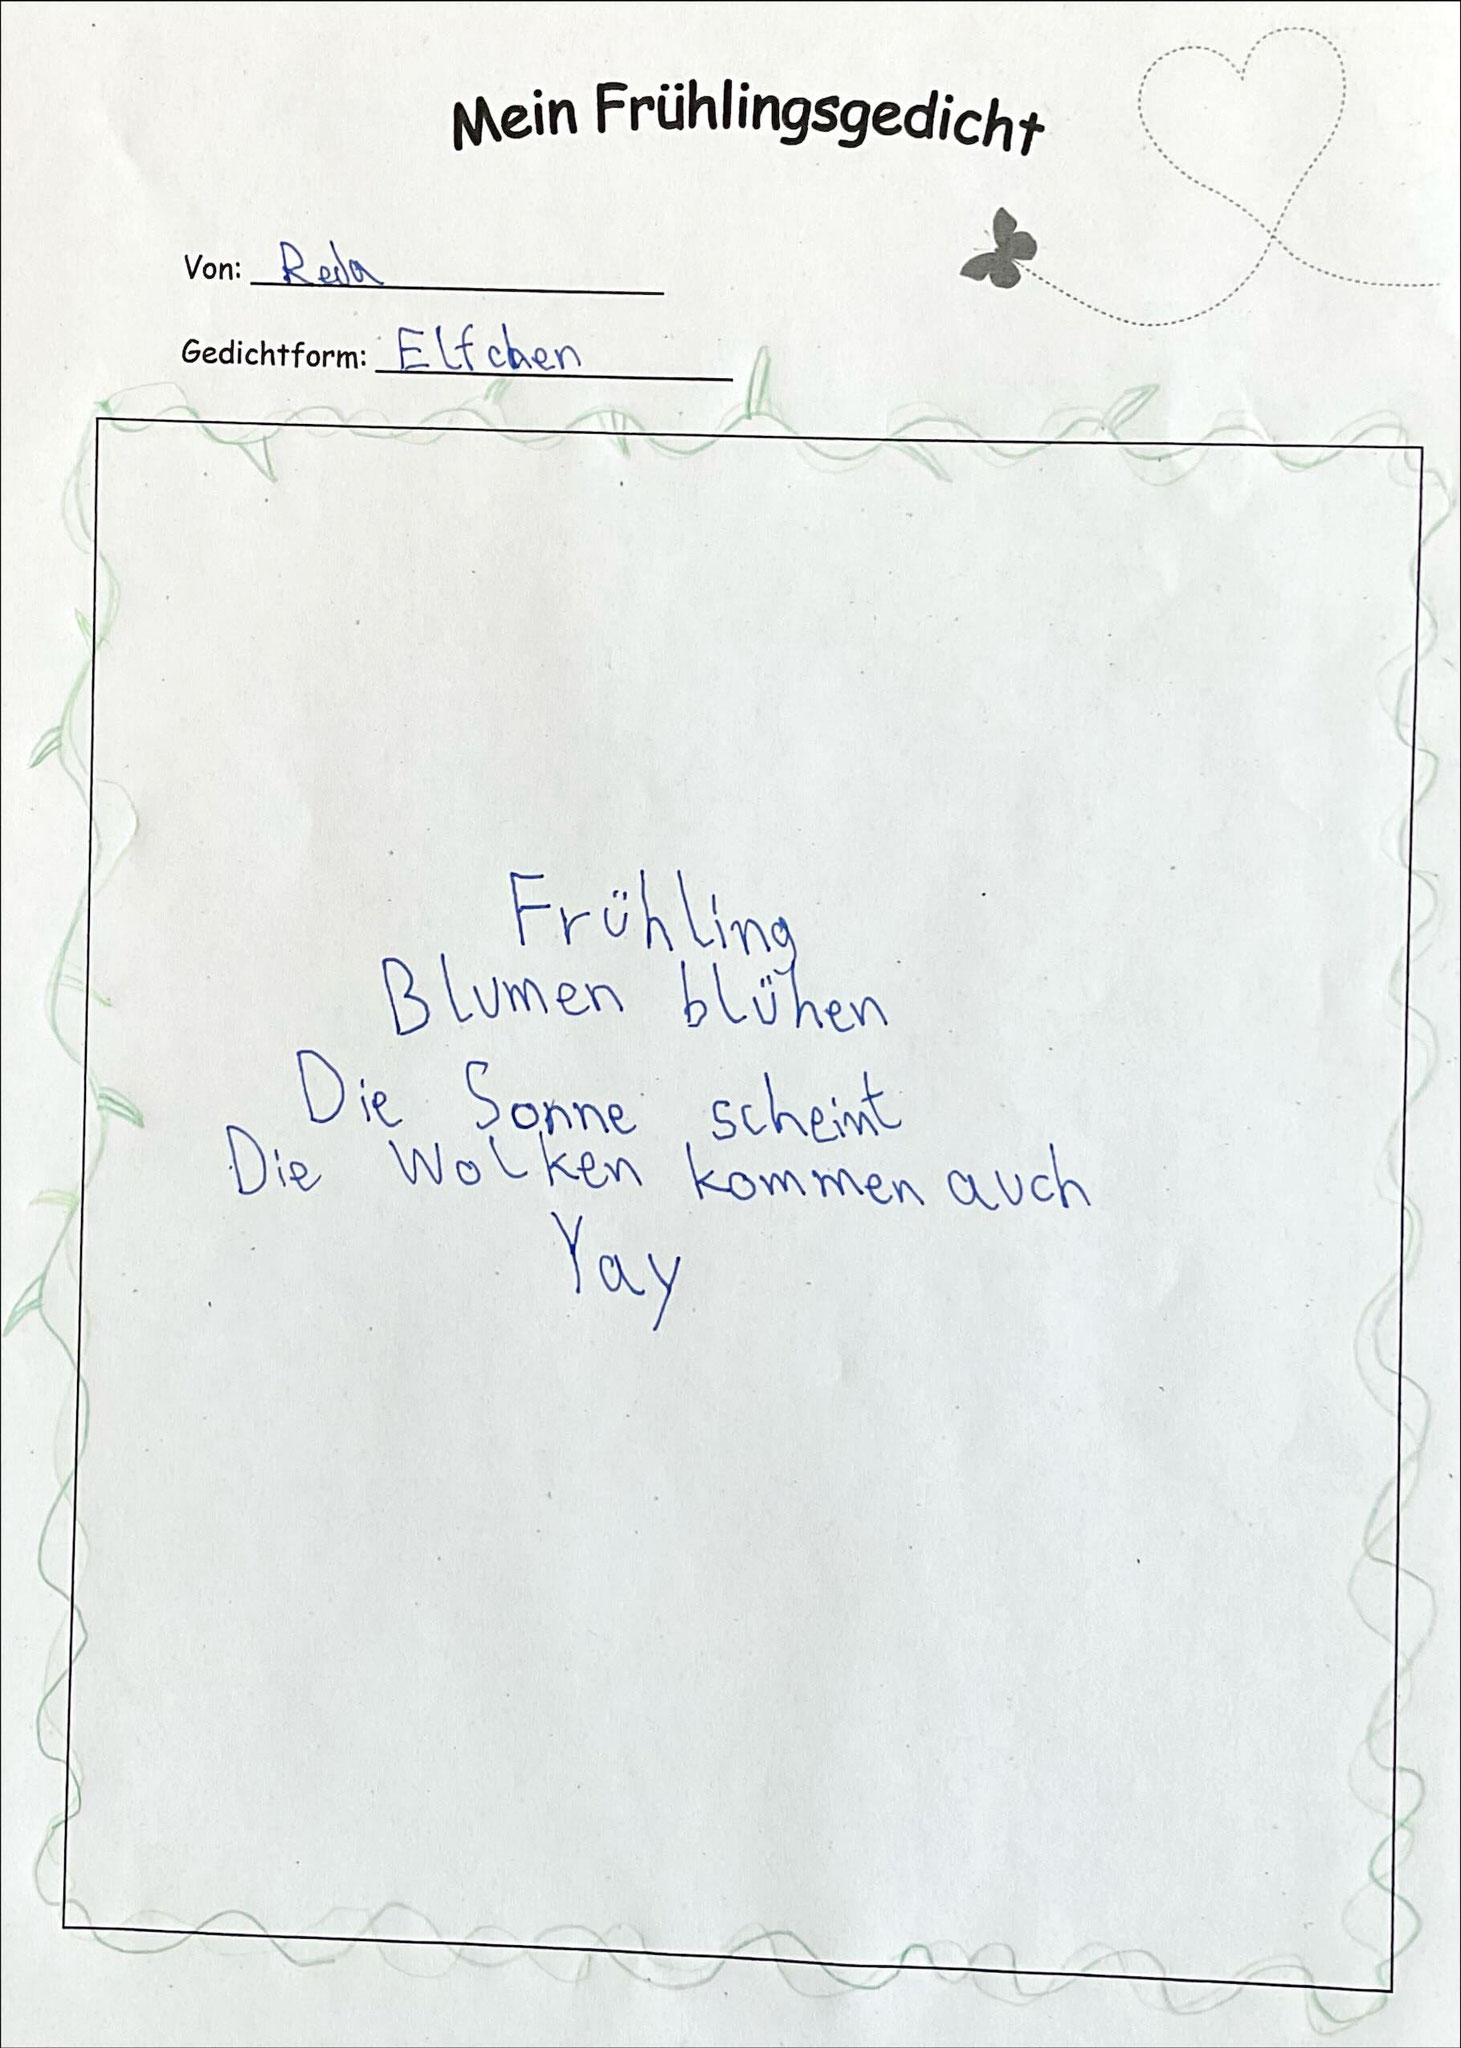 Mein Frühlingsgedicht
Von: Reda
Gedichtform: Elfchen
Frühling
Blumen blühen
Die Sonne scheint
Die Wolken kommen auch
Yay